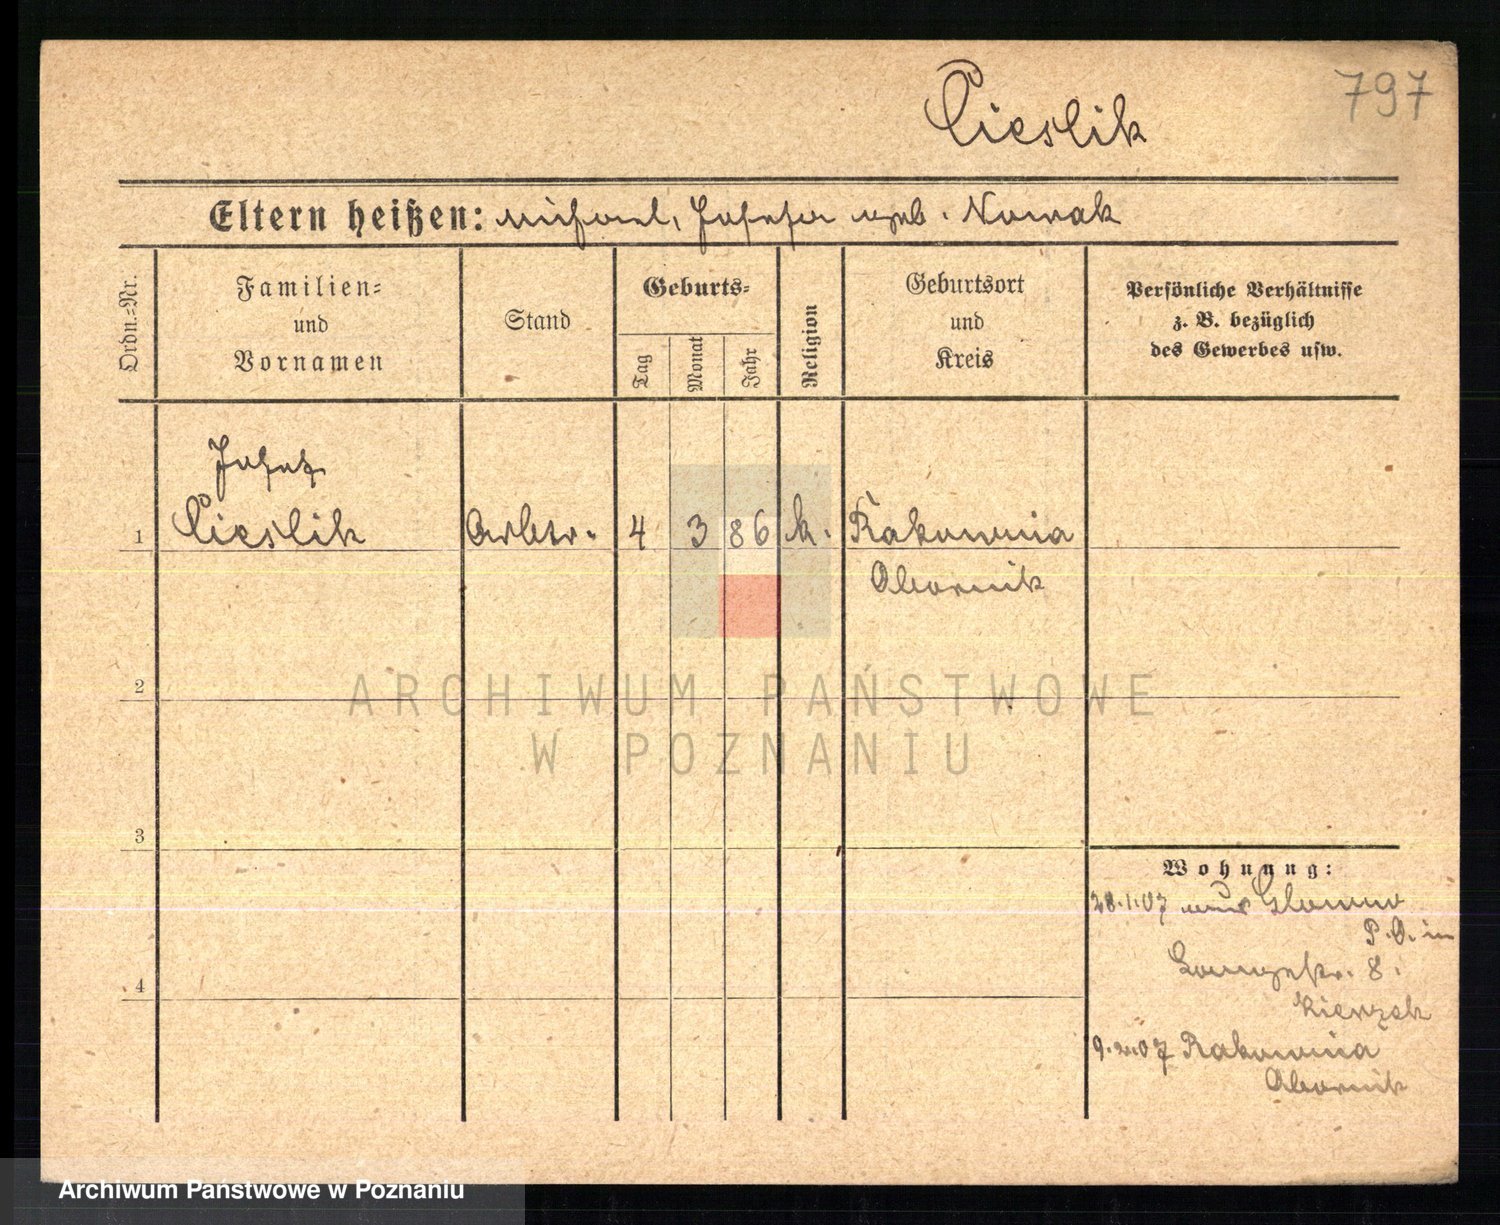 797
Cieslik
Eltern heißen: Michael, Josefa geb. Nowak
Ordn.-Nr.
Familien=
und
Vornamen
Stand
Geburts=
Tag
Monat
Jahr
Religion
Geburtsort
und
Kreis
Persönliche Verhältnisse
z. B. bezüglich
des Gewerbes usw.
Josef
1 Cieslik Arbtr. 4 3 86 k. Rakownia
Obornik
2
ARCHIWUM PAŃSTWOWE
W POZNANIU
3
Wohnung:
28.1.07 aus Glowno
P. O. in
8.
4
9.2.07 Rakownia
Obornik
Archiwum Państwowe w Poznaniu